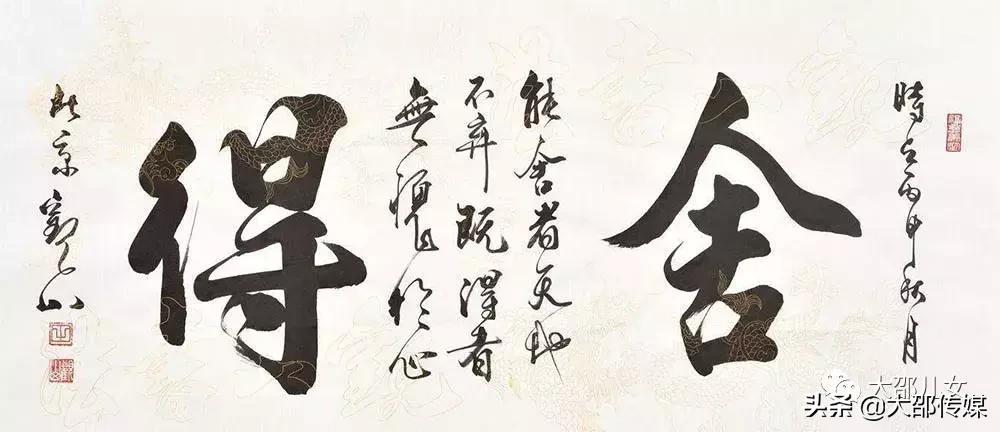 時在丙申秋月
舍
能舍者天地
不弃既得者
無愧於心
得
北京觀山
大邵儿女
头条 @大邵传媒